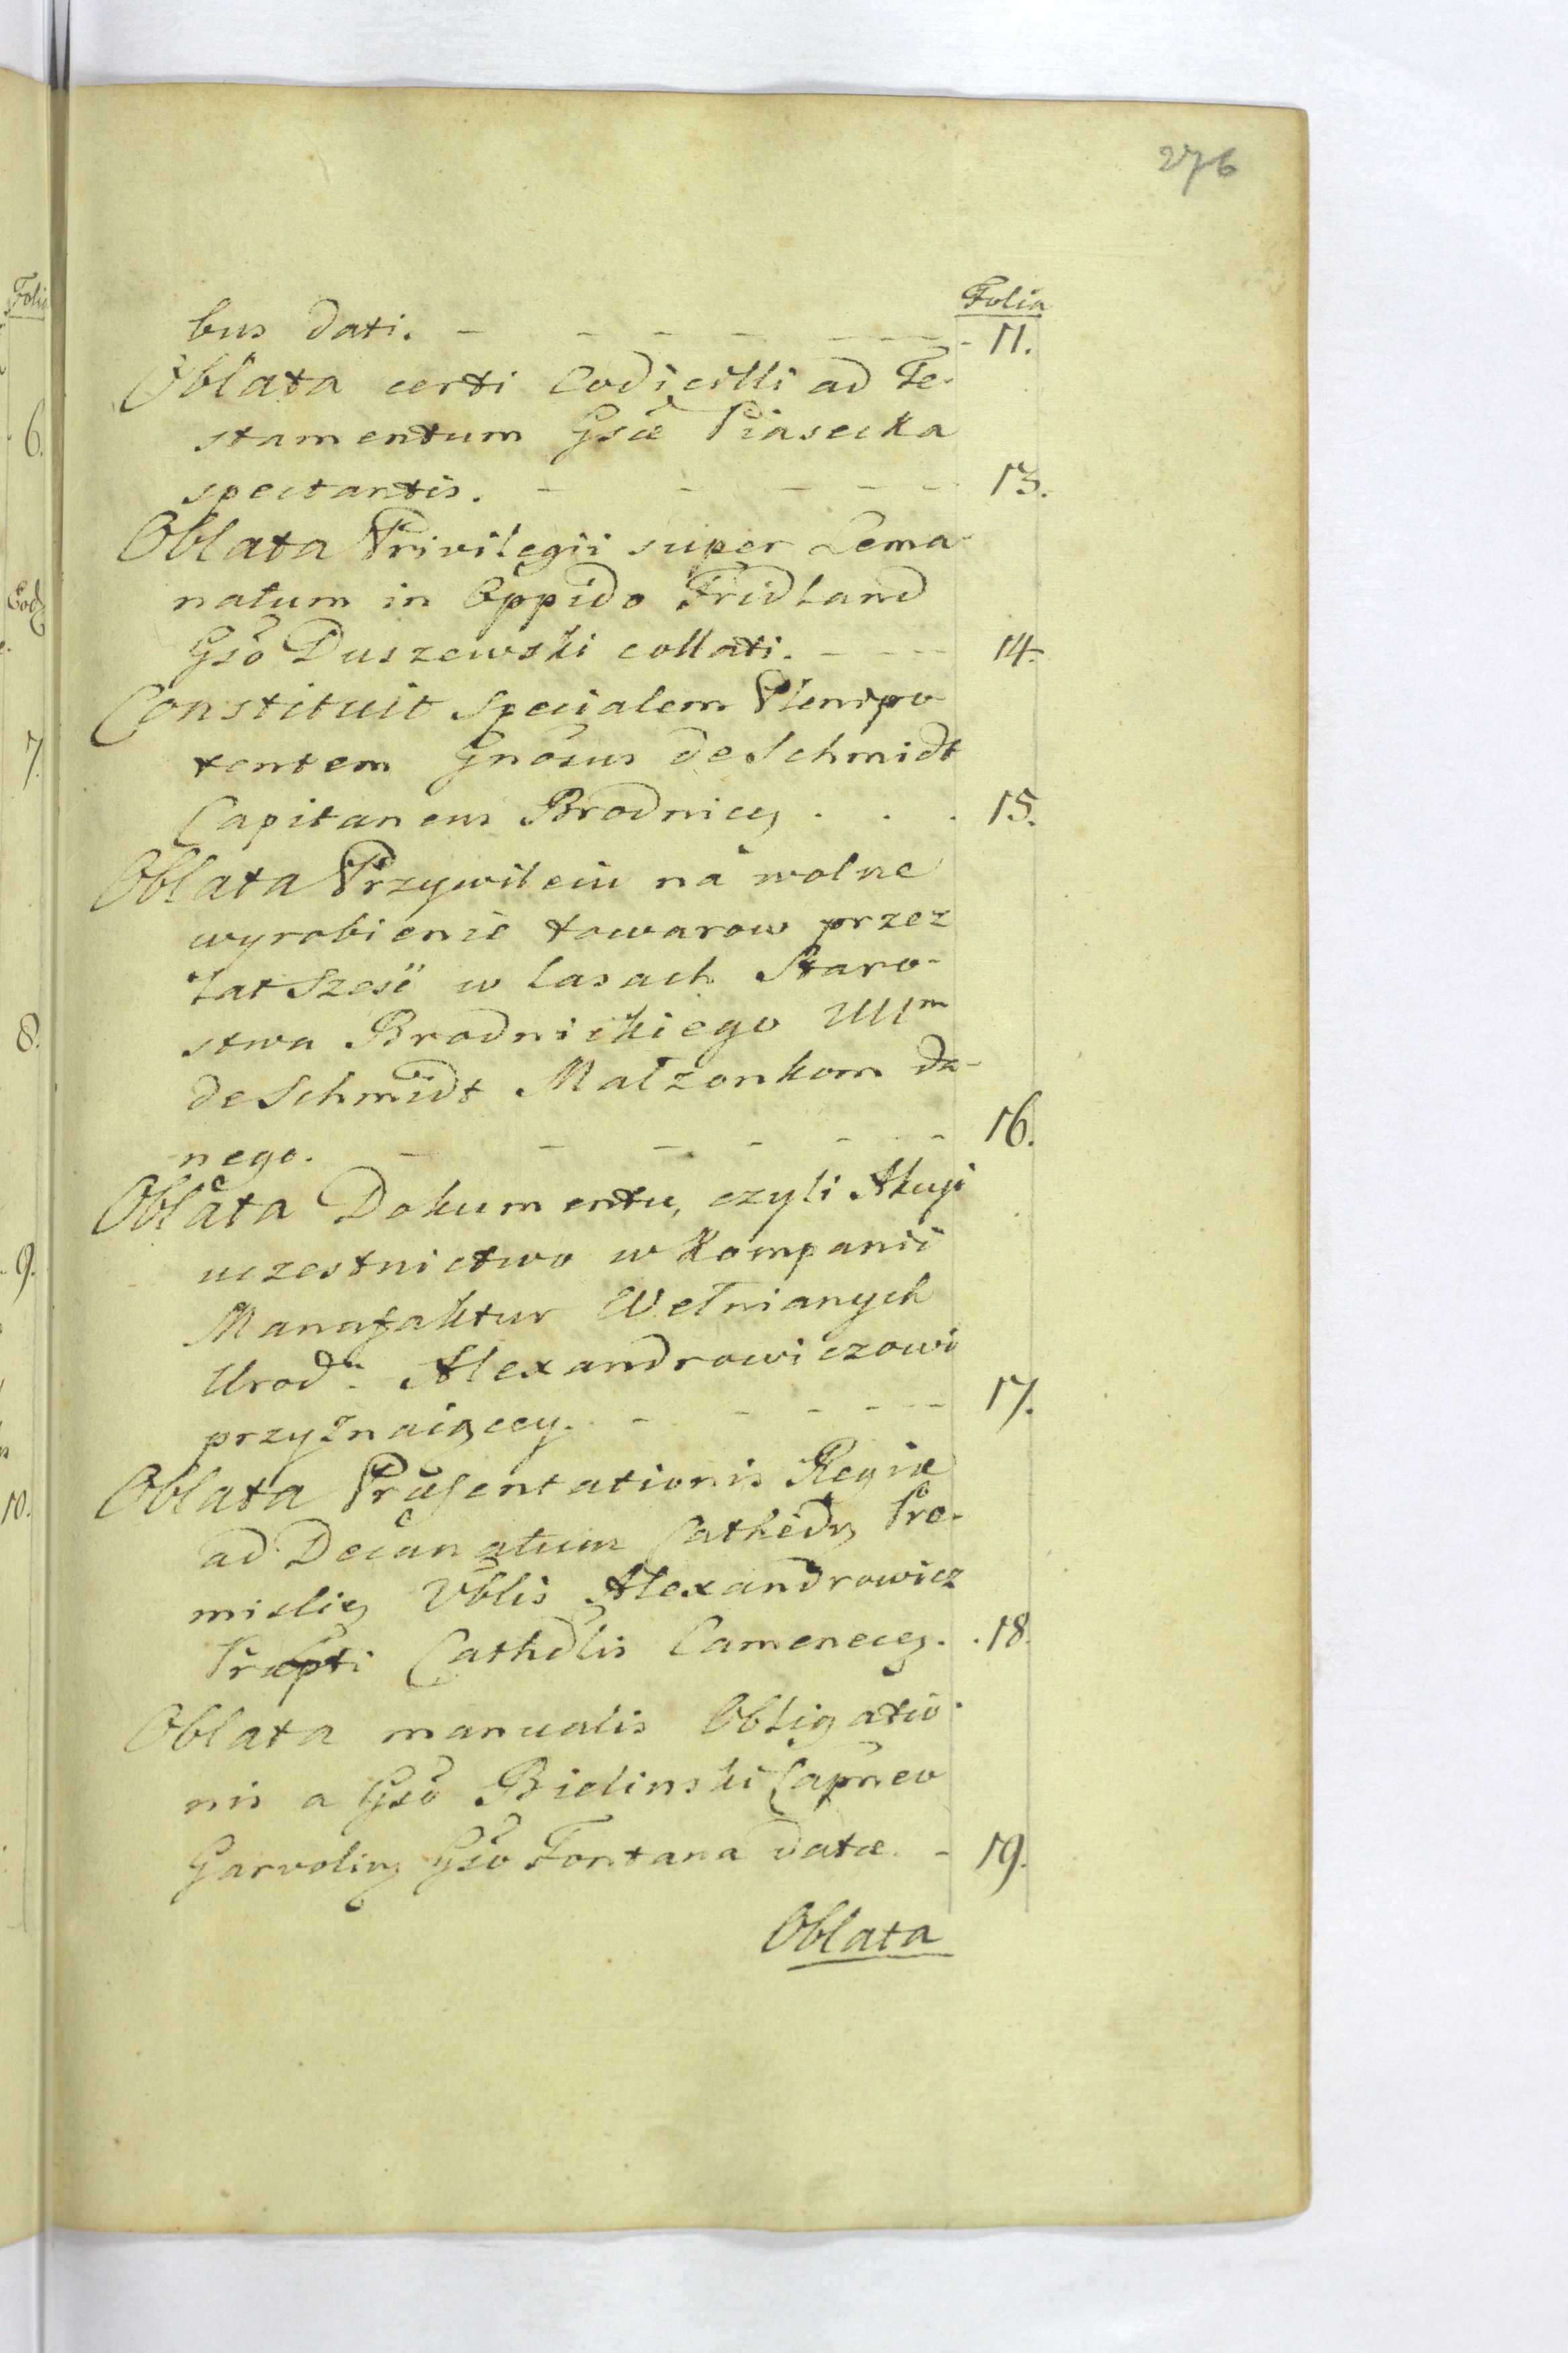 276
Folia
bus dati. - - - - - - - - 11.
Oblata certi Codicilli ad Te-
stamentum Gsæ Piasecka
spectantis. - - - - - - 13.
Oblata Privilegii super Lema-
natum in Oppido Fridland
Gso Duszewski collati. - - - - 14.
Constituit Specialem Plenipo-
tentem Gnosus de Schmidt
Capitaneus Brodnicen . . . 15.
Oblata Przywileiu na wolne
wyrobienie towarow przez
lat Sześć w lasach Staro-
stwa Brodnickiego UUm
de Schmidt Małzonkom da-
nego. - - - - - - 16.
Oblata Dokumentu, czyli Akcyi
uczestnictwo w Kompanii
Manufaktur Wełnianych
Urodu Alexandrowiczowi
przyznaiącey. - - - - - - 17.
Oblata Præsentationis Regiæ
ad Decanatum Cathedr Pre-
mislien Vblis Alexandrowicz
Præpti Cathdlis Camenecen. . 18.
Oblata manualis Obligatio-
nis a Gso Bielinski Capneo
Garvolin Gso Fontana datæ. - 19.
Oblata
Folia
6.
7.
8.
9.
10.